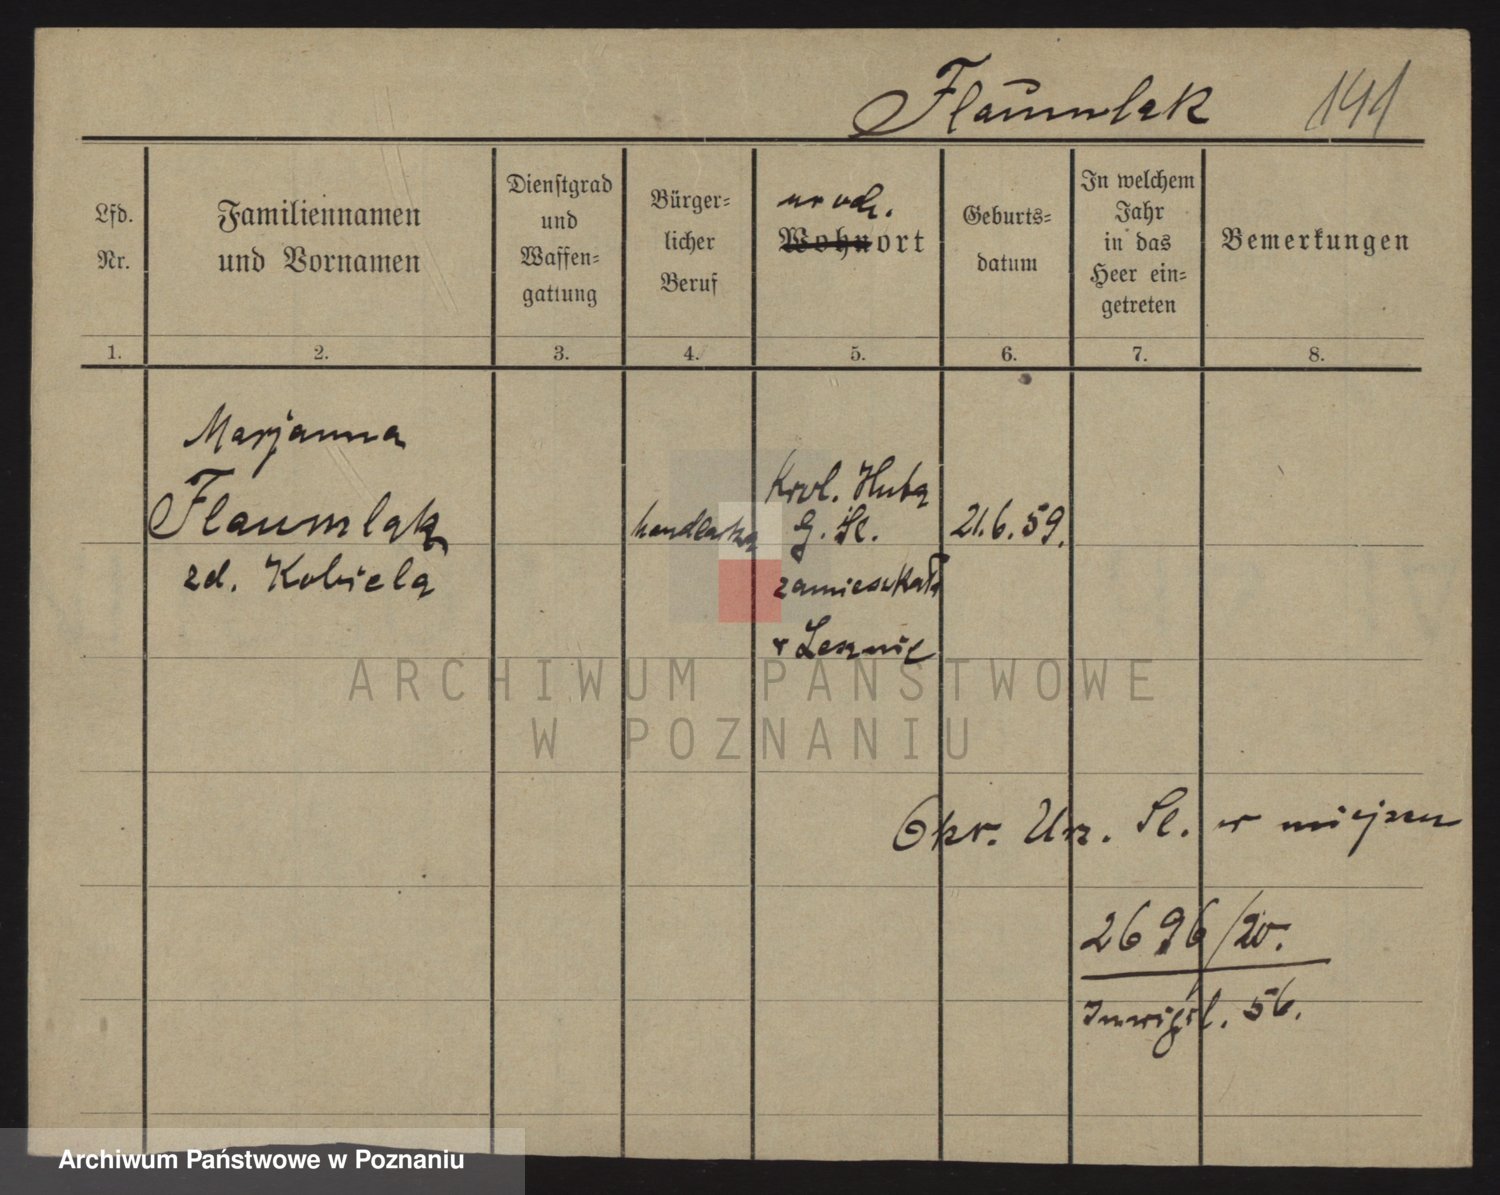 Flaumlak 191
Lfd.
Nr.
Familiennamen
und Vornamen
Dienstgrad
und
Waffen=
gattung
Bürger=
licher
Beruf
urodz.
Wohnort
Geburts=
datum
In welchem
Jahr
in das
Heer ein=
getreten
Bemerkungen
1. 2. 3. 4. 5. 6. 7. 8.
Marjanna
Flaumlak
zd. Kobiela
handlarka
Krol. Huta
G. Śl.
zamieszkała
w Lesznie
21.6.59.
Okr. Urz. Śl. w miejscu
2696/20.
Inwigil. 56.
ARCHIWUM PAŃSTWOWE
W POZNANIU
Archiwum Państwowe w Poznaniu